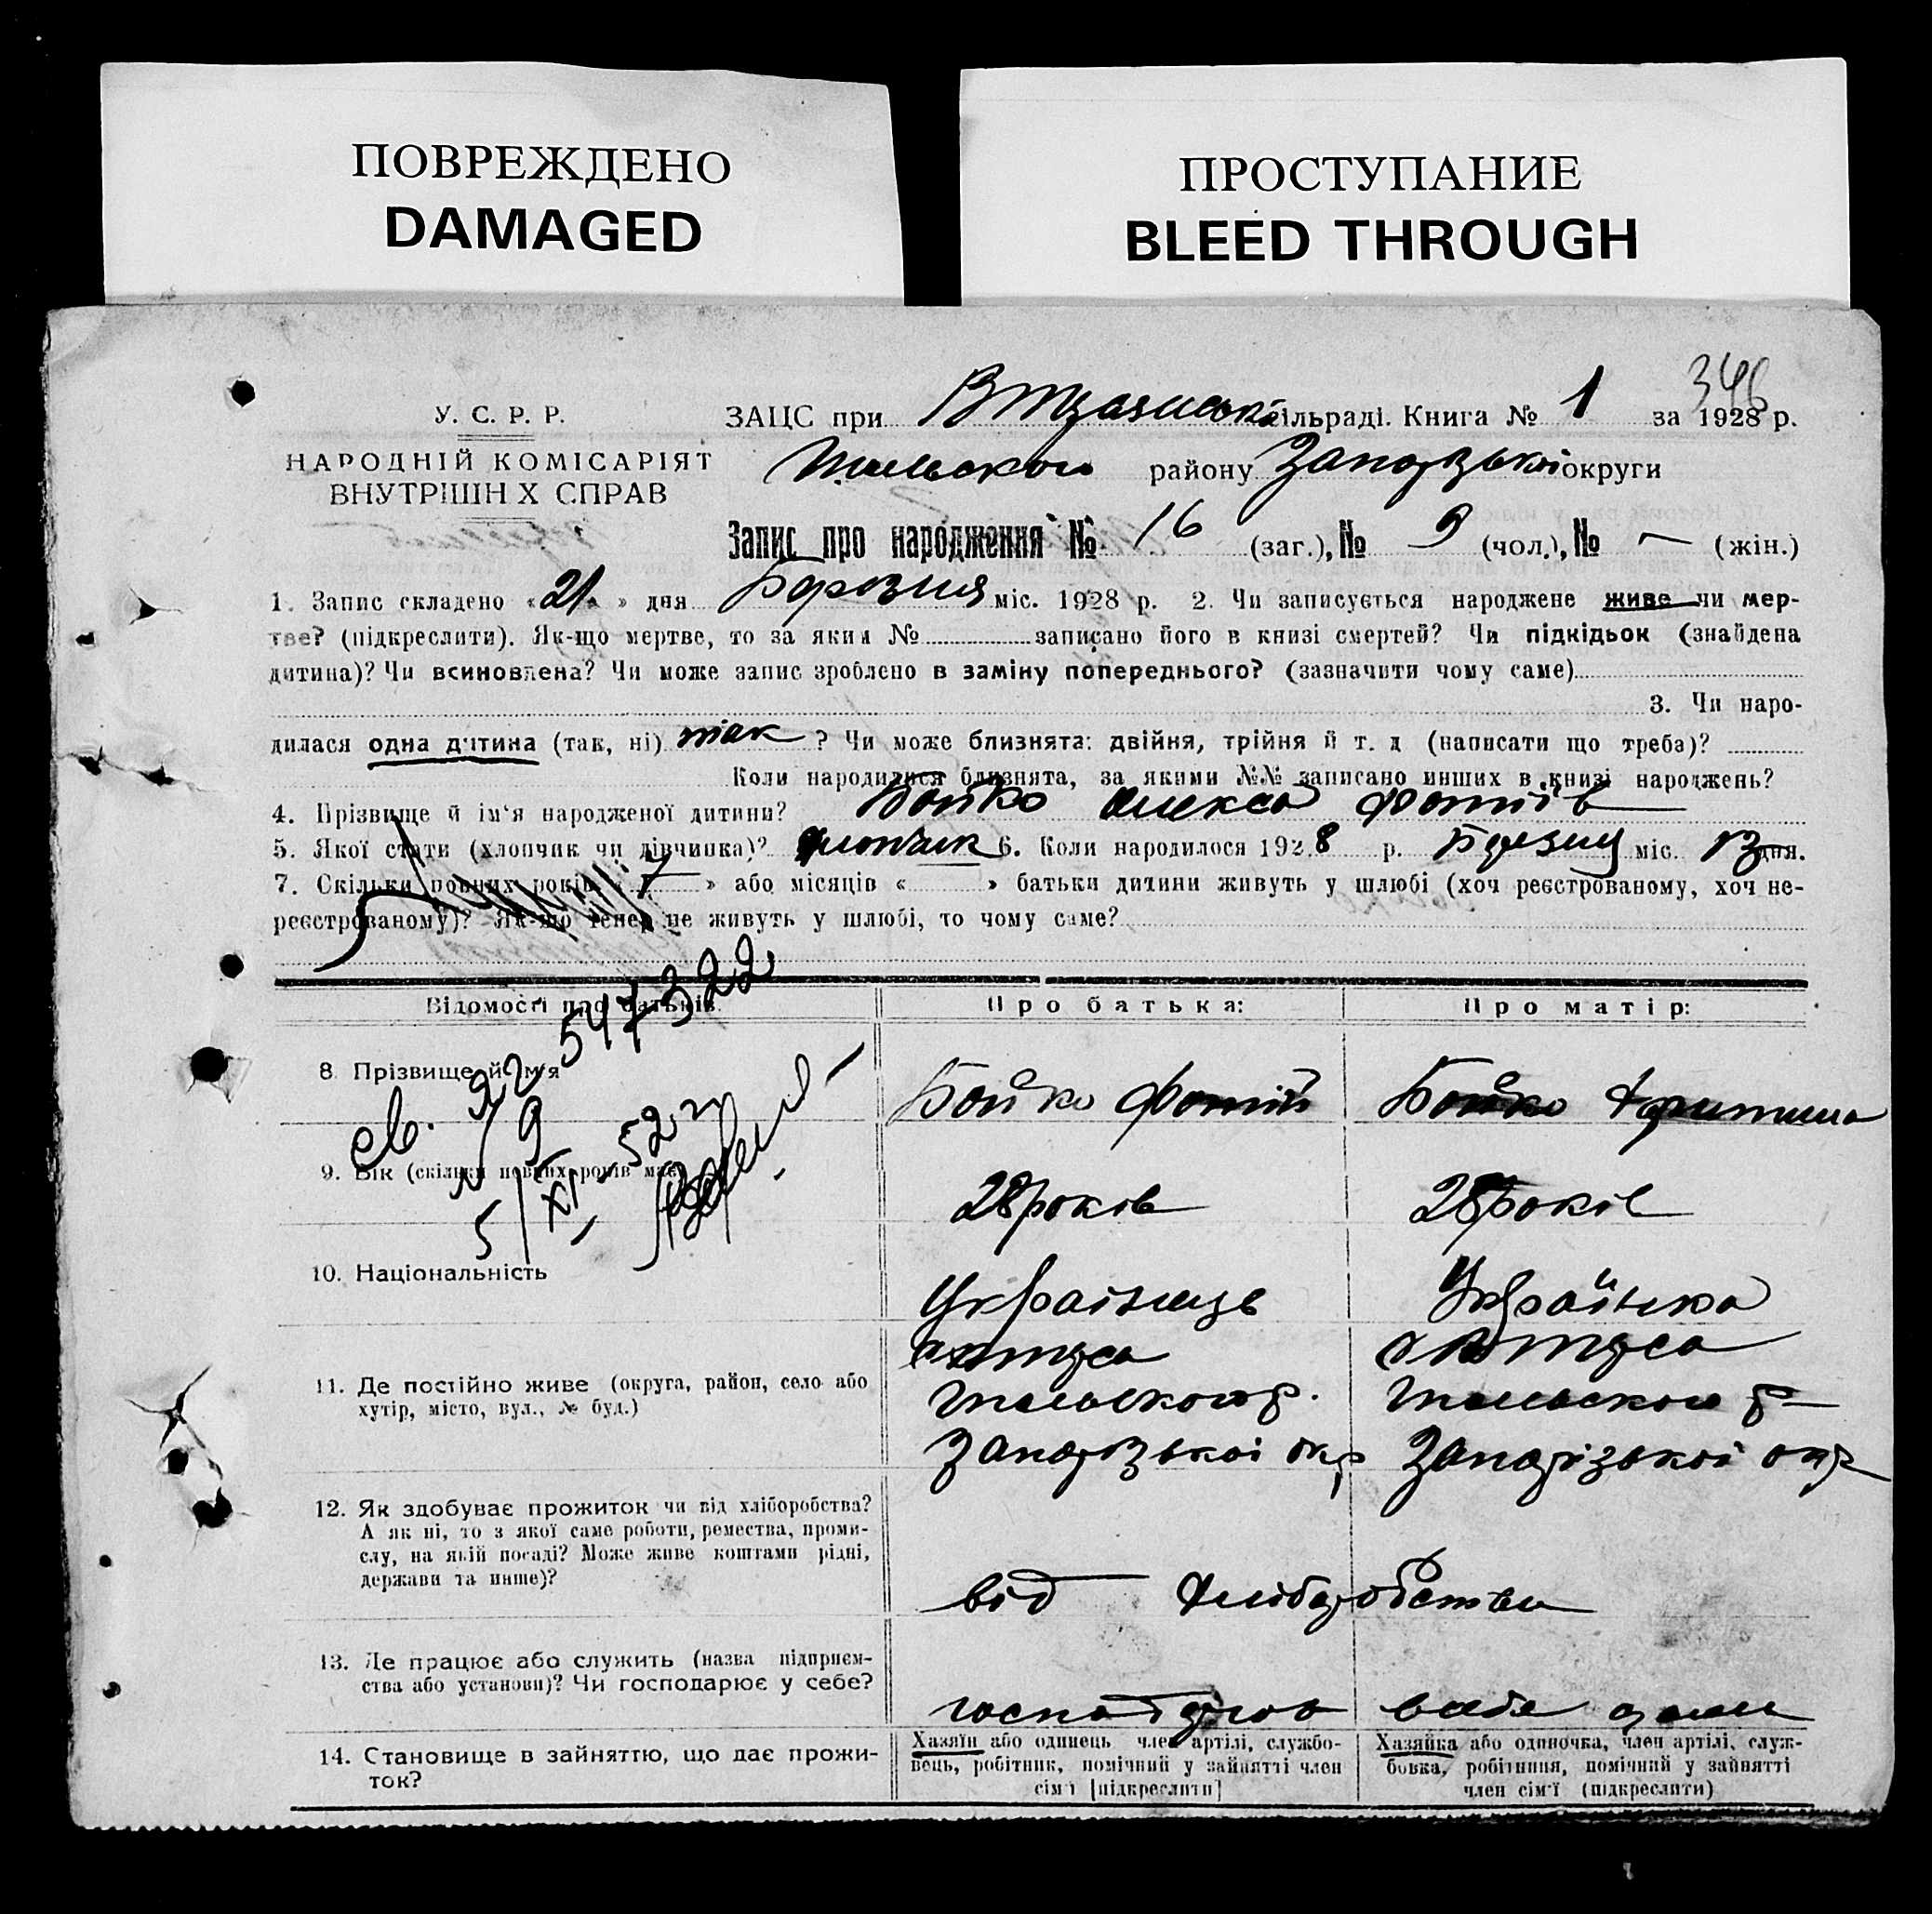 ПОВРЕЖДЕНО
DAMAGED
ПРОСТУПАНИЕ
BLEED THROUGH
346
У. С. Р. Р.
НАРОДНІЙ КОМІСАРІЯТ
ВНУТРІШН Х СПРАВ
ЗАЦС при сільраді. Книга № 1 за 1928 р.
району Запорізької округи
Запис про народження № 16 (заг.), № 9 (чол.), № — (жін.)
1. Запис складено «21» дня Березня міс. 1928 р. 2. Чи записується народжене живе чи мер-
тве? (підкреслити). Як-що мертве, то за яким № записано його в книзі смертей? Чи підкідьок (знайдена
дитина)? Чи всиновлена? Чи може запис зроблено в заміну попереднього? (зазначити чому саме)
3. Чи наро-
дилася одна дитина (так, ні) так ? Чи може близнята: двійня, трійня й т. д (написати що треба)?
Коли народилися близнята, за якими №№ записано инших в книзі народжень?
4. Прізвище й ім'я народженої дитини? Бойко Олекса Фотіїв
5. Якої стати (хлопчик чи дівчинка)? хлопчик 6. Коли народилося 1928 р. Березня міс. 13 дня.
7. Скільки повних років «7» або місяців « » батьки дитини живуть у шлюбі (хоч реєстрованому, хоч не-
реєстрованому)? Як-що тепер не живуть у шлюбі, то чому саме?
св. 22 547322
5/XI 52 г.
Відомості про батьків Про батька: Про матір:
8 Прізвище й ім'я Бойко Фотій Бойко
9. Вік (скільки повних років має) 28 років 28 років
10. Національність Українець Українка
11. Де постійно живе (округа, район, село або
хутір, місто, вул., № буд.)
Запорізької окр Запорізької окр
12. Як здобуває прожиток чи від хліборобства?
А як ні, то з якої саме роботи, ремества, проми-
слу, на якій посаді? Може живе коштами рідні,
держави та инше)?
від хліборобства
13. Де працює або служить (назва підприєм-
ства або установи)? Чи господарює у себе?
14. Становище в зайняттю, що дає прожи-
ток?
Хазяїн або одинець член артілі, службо-
вець, робітник, помічний у зайнятті член
сім'ї [підкреслити]
Хазяйка або одиночка, член артілі, служ-
бовка, робітниця, помічний у зайнятті
член сім'ї (підкреслити)